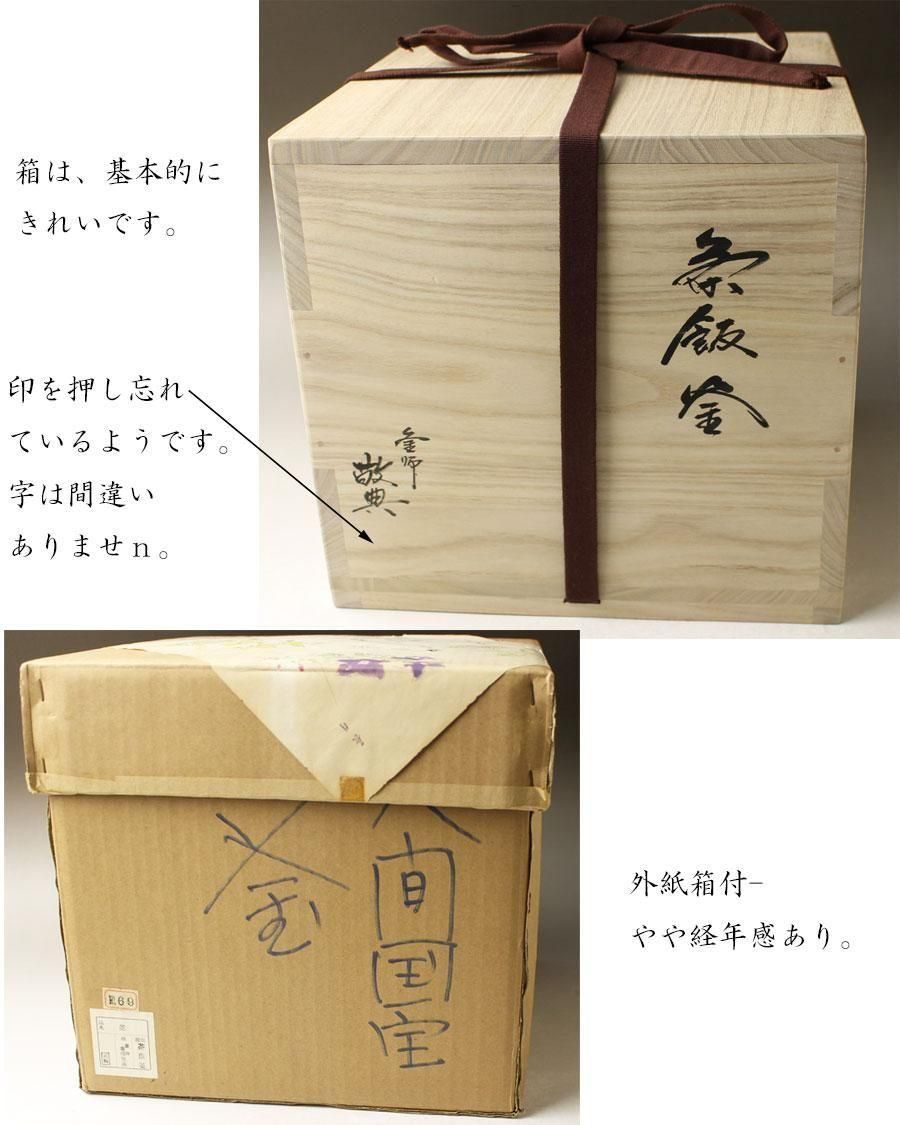 箱は、基本的に
きれいです。
印を押し忘れ
ているようです。
字は間違い
ありませｎ。
飯
釜
釜師
敬典
人間国宝
釜
㍇69
外紙箱付-
やや経年感あり。